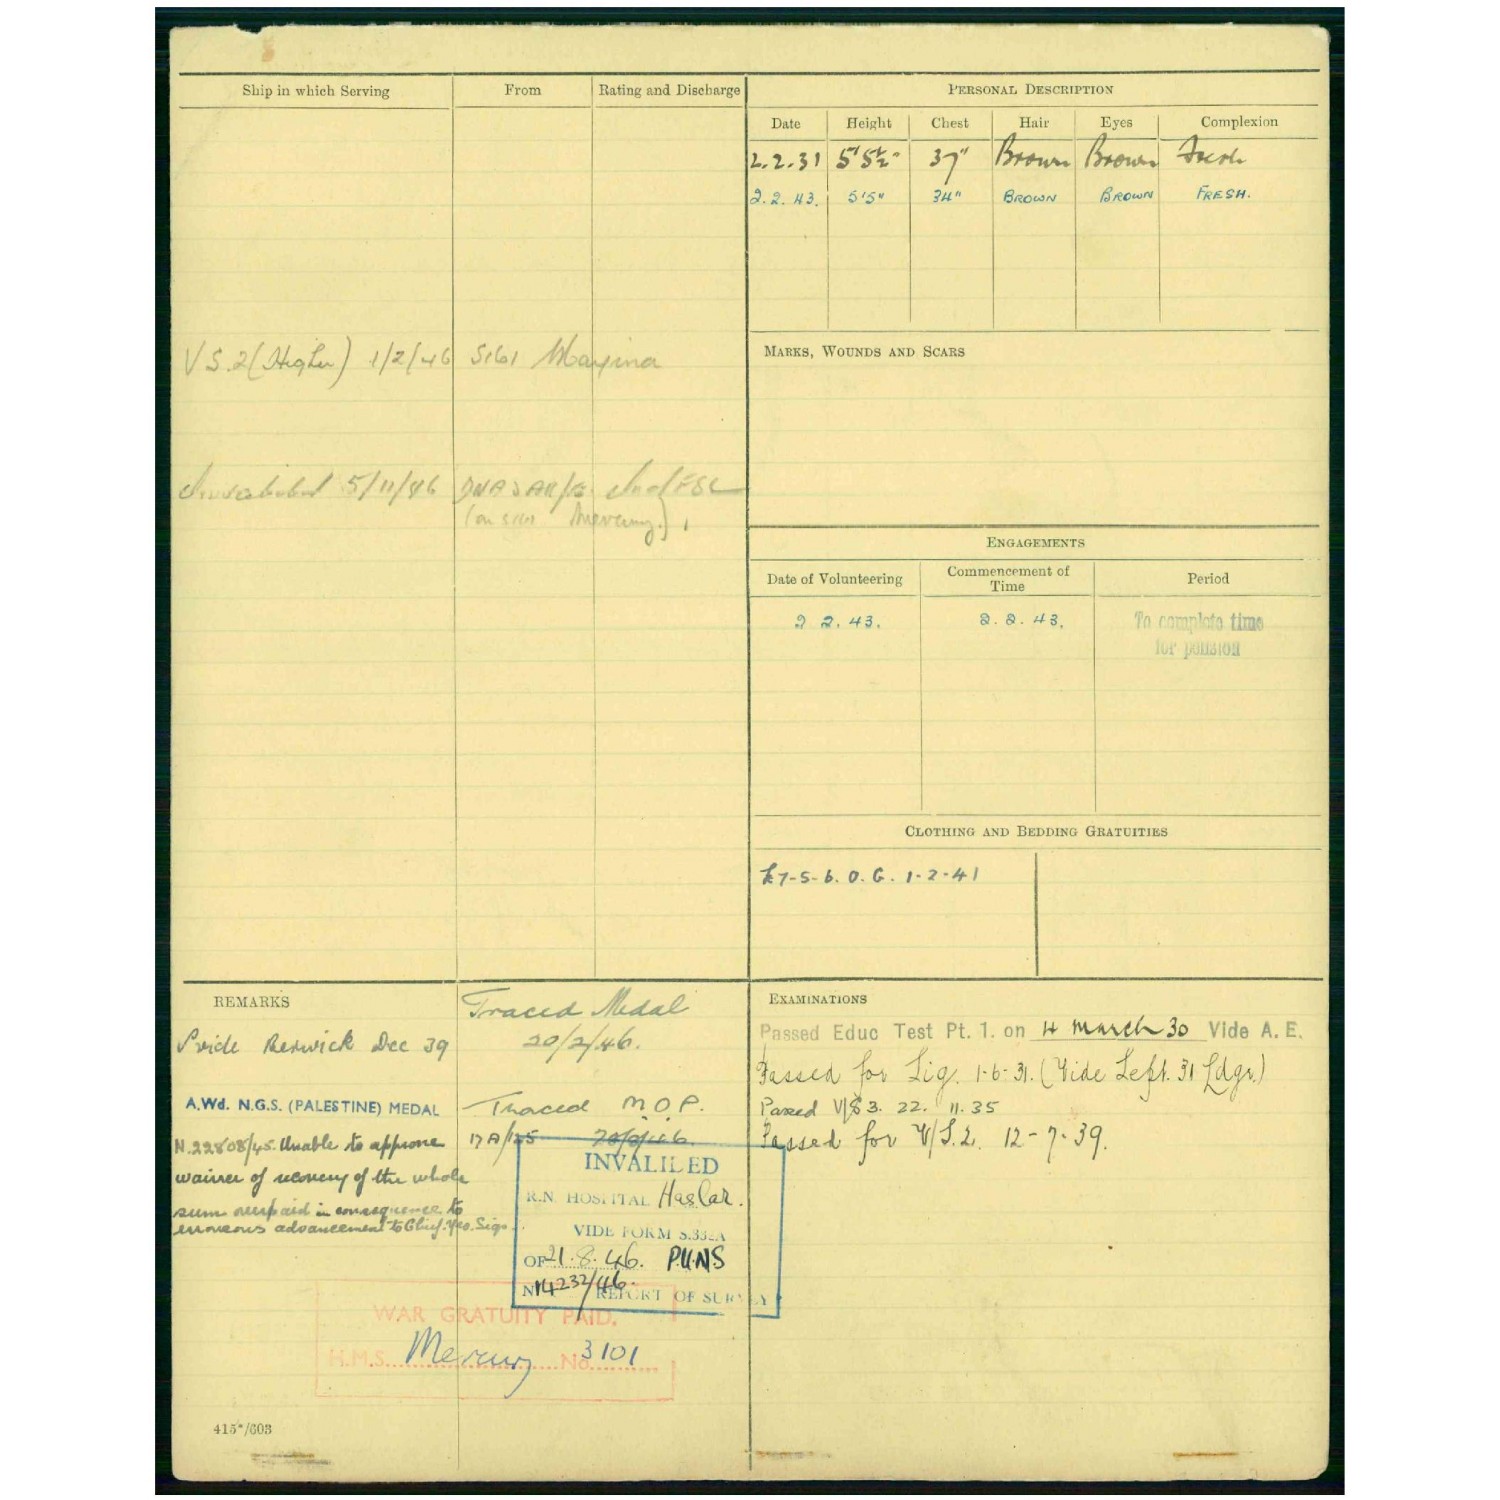 Ship in which Serving From Rating and Discharge
V S.2 (Higher) 1/2/46 S161
5/11/46
PERSONAL DESCRIPTION
Date Height Chest Hair Eyes Complexion
2.2.31 5'5½" 37" Brown Brown Fresh
2.2.43. 5'5" 34" BROWN BROWN FRESH.
MARKS, WOUNDS AND SCARS
ENGAGEMENTS
Date of Volunteering Commencement of Time Period
2 2.43. 2.2.43. To complete time
for pension
CLOTHING AND BEDDING GRATUITIES
£7-5-6. O.G. 1-2-41
REMARKS
Traced Medal
20/2/46.
Pride Berwick Dec 39
A.Wd. N.G.S. (PALESTINE) MEDAL
Traced M.O.P.
N.22808/45. Unable to approve
waiver of recovery of the whole
sum overpaid in consequence to
erroneous advancement to Chief. Yeo. Sigs.
INVALILED
R.N. HOSPITAL Haslar.
VIDE FORM S.332A
OF 21.8.46. P.U.N.S
No 14232/46.
REPORT OF SURVEY
WAR GRATUITY PAID.
H.M.S. Mercury No 3101
415*/603
EXAMINATIONS
Passed Educ Test Pt. 1. on 4 March 30 Vide A.E.
Passed for Sig. 1-6-31. (Vide Sept. 31 Ldgr.)
Passed V/S 3. 22. 11. 35
Passed for V/S.2. 12-7-39.